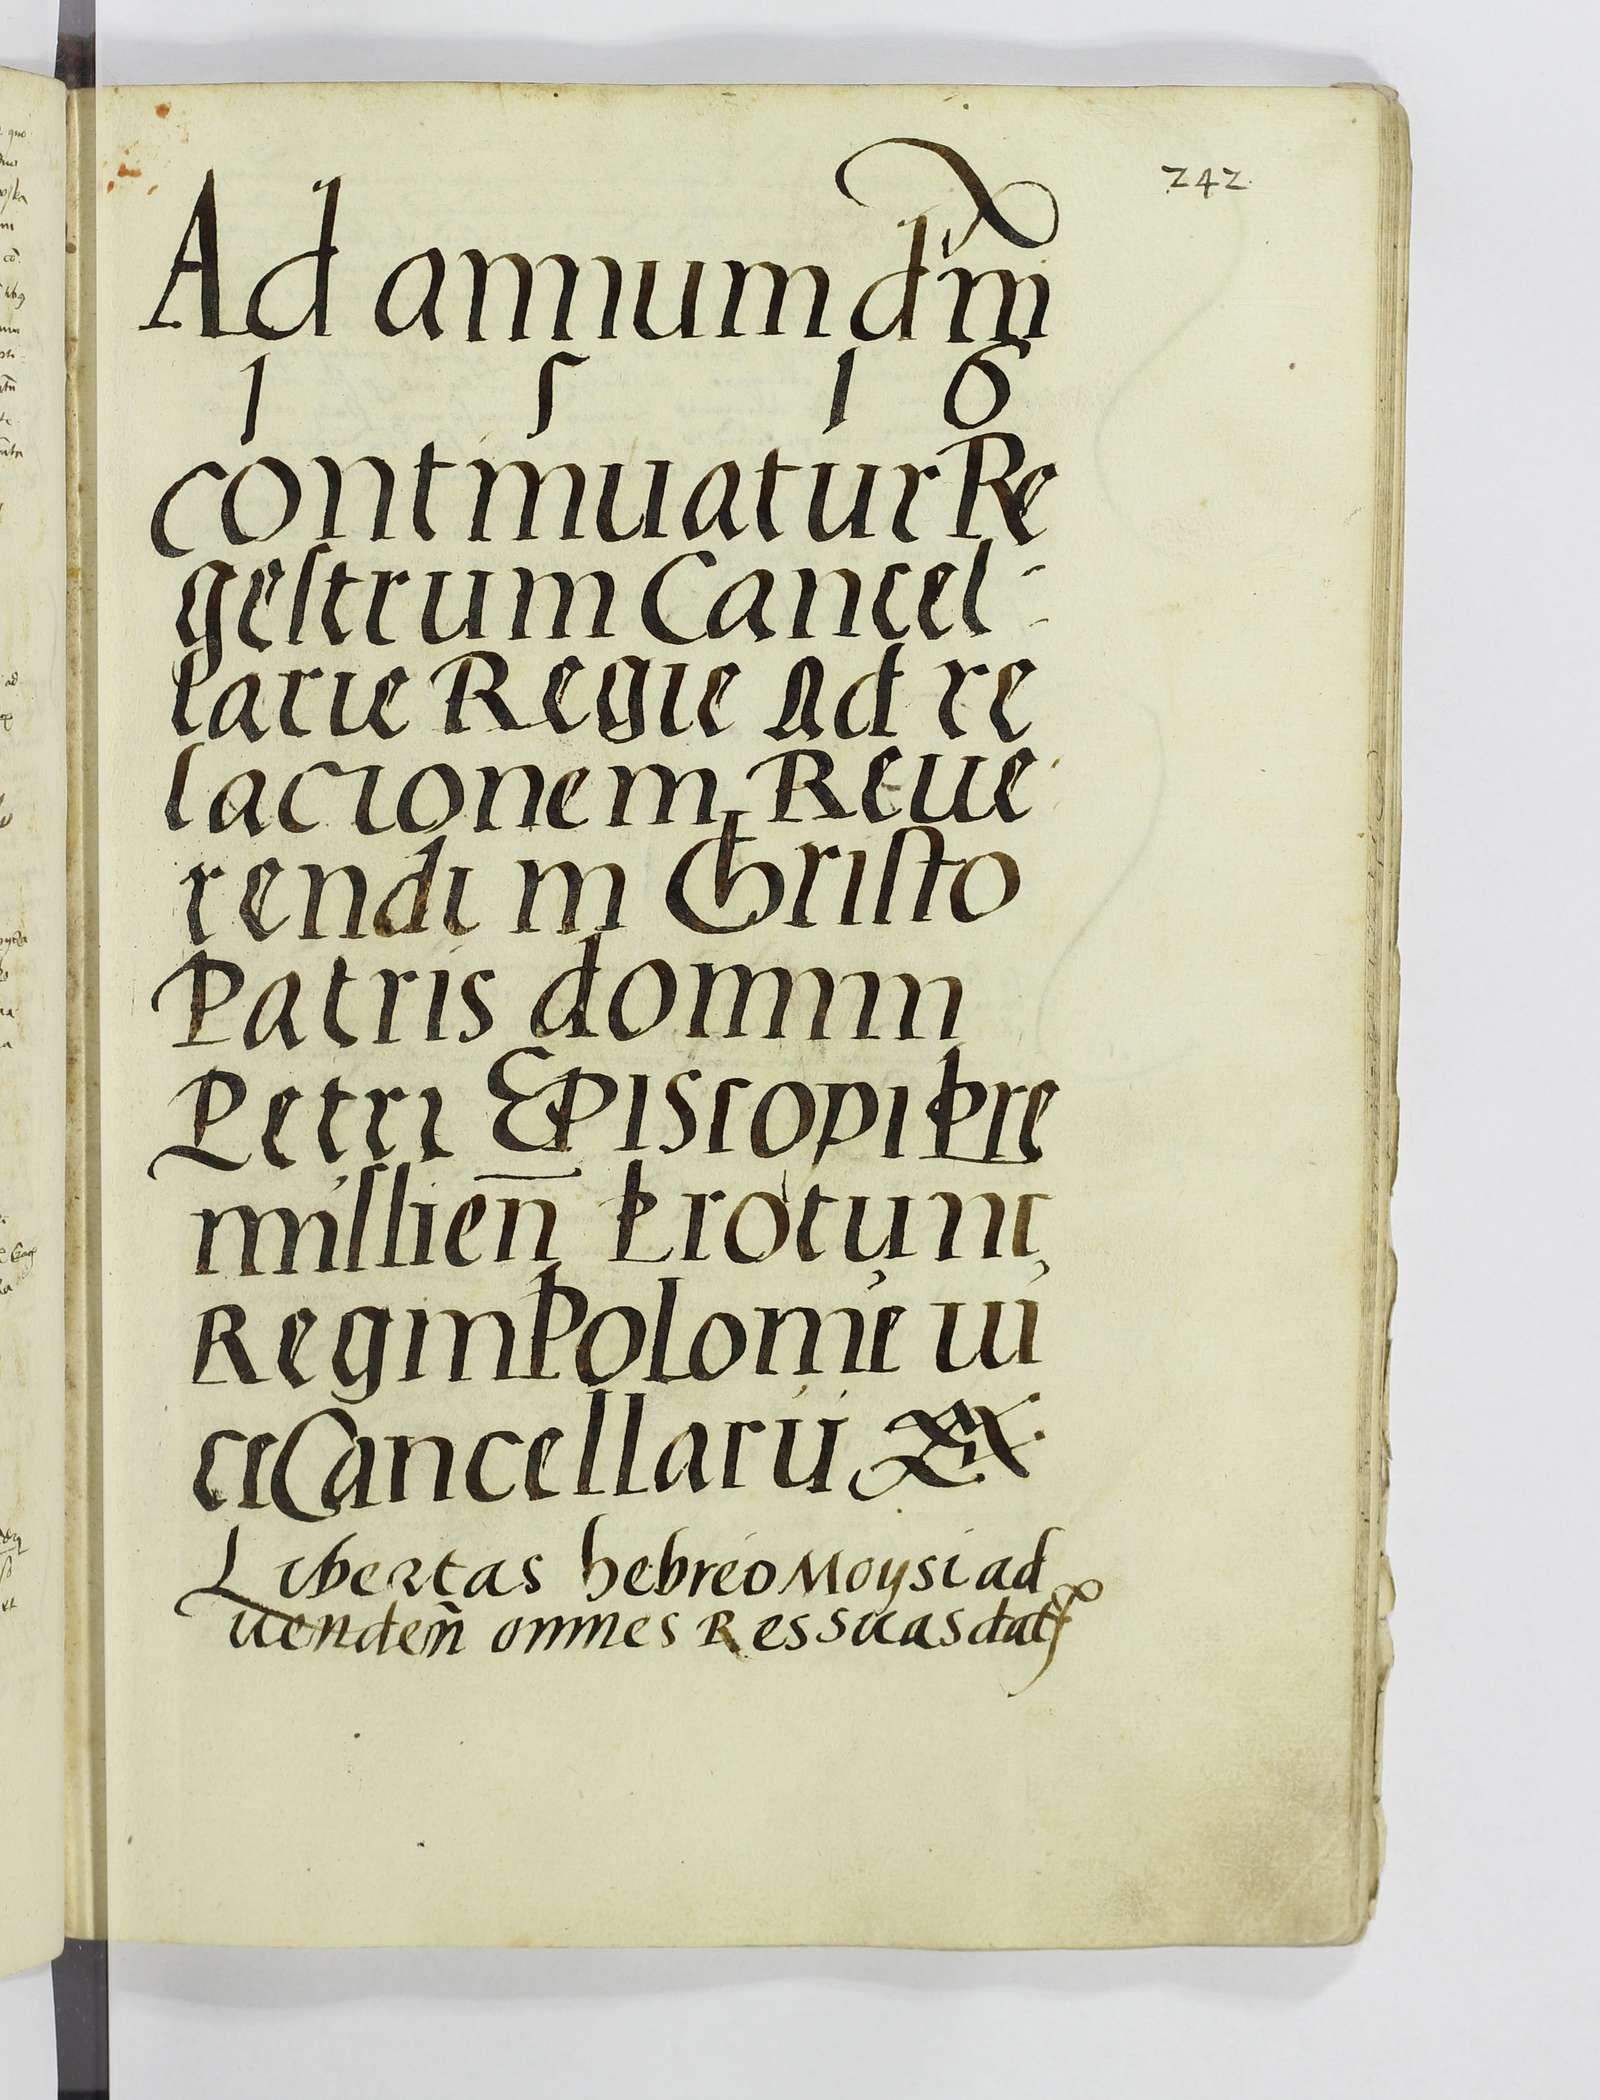 242
Ad annum dm̄
1 5 1 6
continuatur Re
gestrum Cancel-
larie Regie Ad re
lacionem Reue
rendi in Christo
Patris domini
Petri Episcopi Pre
mislien̄ protunc
Regni Polonie vi
ceCancellarii
Libertas hebreo Moysi ad
uenden̄ omnes Res suas dat